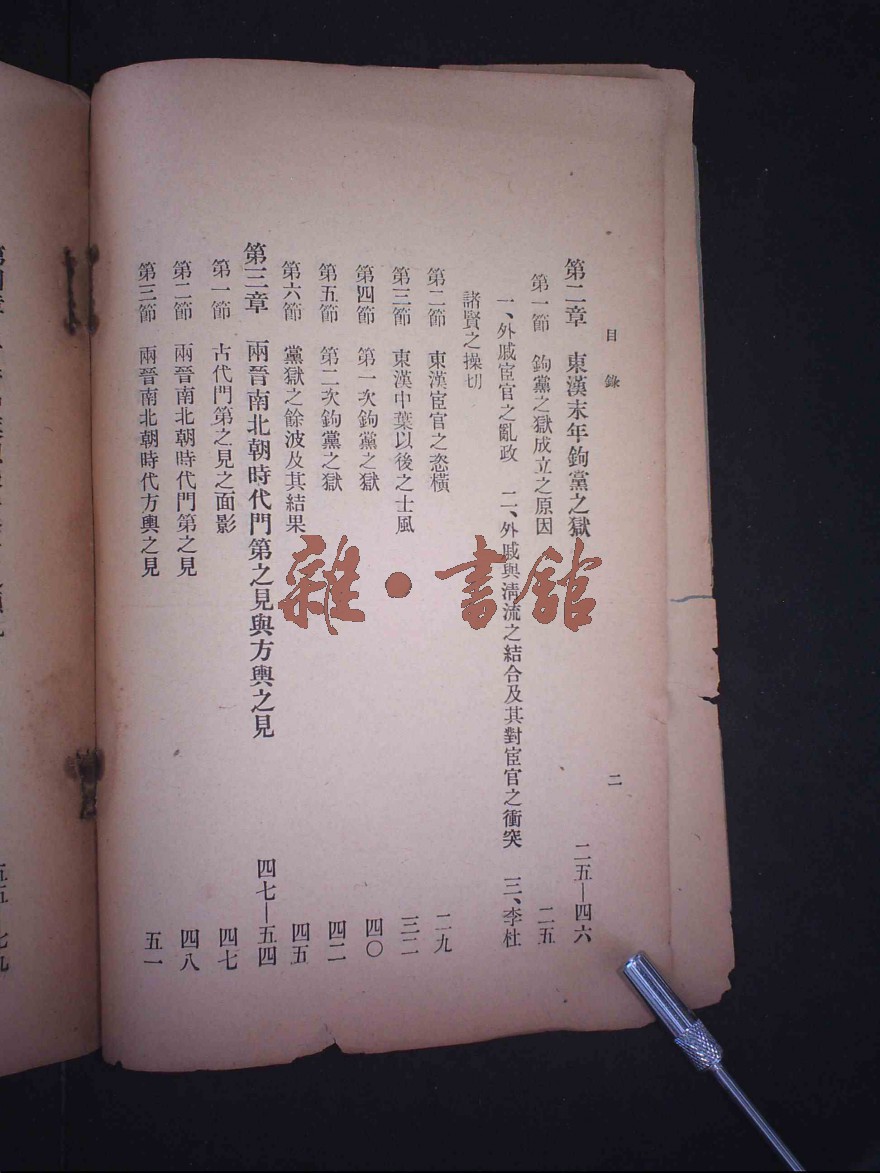 目錄
二
第二章　東漢末年鉤黨之獄　二五—四六
第一節　鉤黨之獄成立之原因　二五
一、外戚宦官之亂政　二、外戚與淸流之結合及其對宦官之衝突　三、李杜
諸賢之操切
第二節　東漢宦官之恣橫　二九
第三節　東漢中葉以後之士風　三二
第四節　第一次鉤黨之獄　四〇
第五節　第二次鉤黨之獄　四二
第六節　黨獄之餘波及其結果　四五
第三章　兩晉南北朝時代門第之見與方輿之見　四七—五四
第一節　古代門第之見之面影　四七
第二節　兩晉南北朝時代門第之見　四八
第三節　兩晉南北朝時代方輿之見　五一
雜·書舘